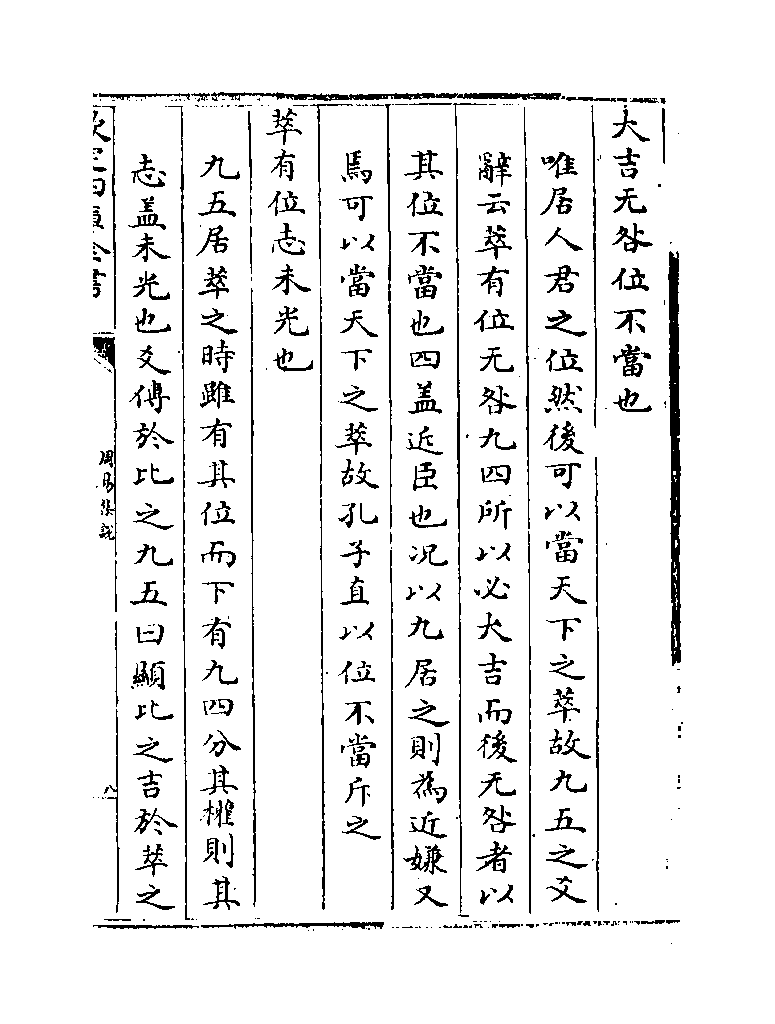 大吉无咎位不當也
唯居人君之位然後可以當天下之萃故九五之爻
辭云萃有位无咎九四所以必大吉而後无咎者以
其位不當也四盖近臣也况以九居之則為近嫌又
焉可以當天下之萃故孔子直以位不當斥之
萃有位志未光也
九五居萃之時雖有其位而下有九四分其權則其
志盖未光也爻傳於比之九五曰顯比之吉於萃之
欽定四庫全書
周易集説
八